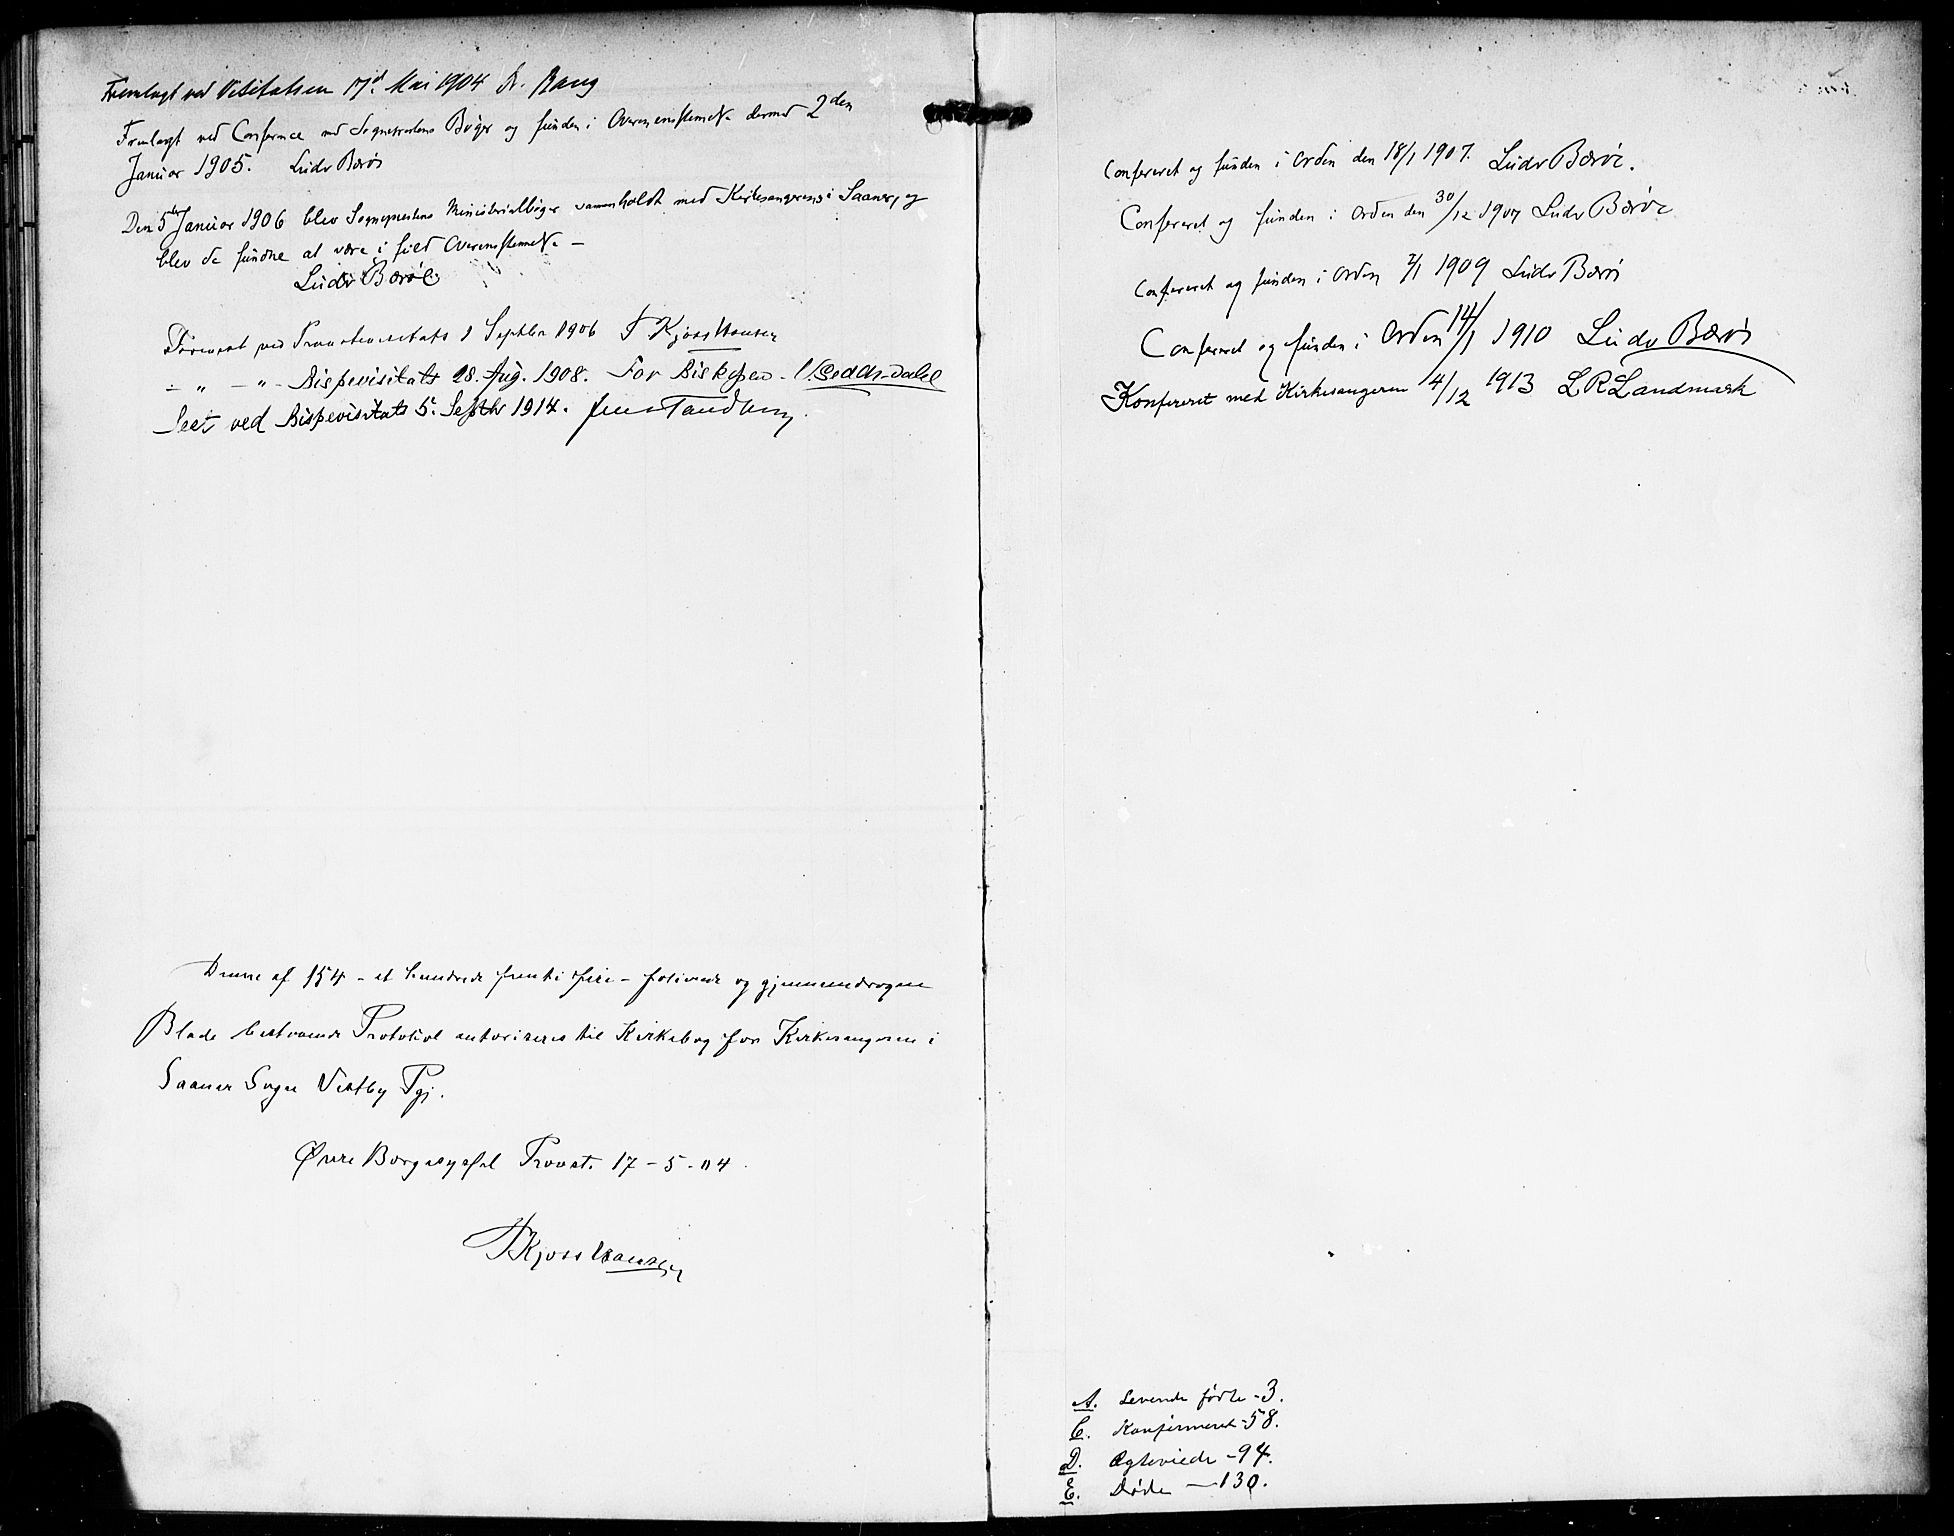 Fremlagt ved Visitatsen 17de Mai 1904 A. Bang
Fremlagt ved Conference med Sogneprestens Bøger og funden i Overensstemmelse dermed 2den
Januar 1905. Ludv Bærøe
Den 5te Januar 1906 blev Sogneprestens Ministerialbøger sammenholdt med Kirkesangerens i Saaner, og
blev de fundne at være i fuld Overensstemmelse –
Ludv Bærøe
Forevist ved Provstevisitats 1 Septbr 1906 F Kjoss Hansen
– „ – „ – Bispevisitats 28. Aug. 1908. For Biskopen.
Seet ved Bispevisitats 5. Septbr 1914. Jens Tandberg.
Denne af 154 – et hundrede femti fire – folierede og gjennemdragne
Blade bestaaende Protokol autoriseres til Kirkebog for Kirkesangeren i
Saaner Sogn Vestby Pgj.
Øvre Borgesyssel Provsti 17 – 5 – 04.
F Kjoss Hansen
Confereret og funden i Orden den 18/1 1907. Ludv Bærøe.
Confereret og funden i Orden den 30/12 1907 Ludv Bærøe
Confereret og funden i Orden 2/1 1909 Ludv Bærøe
Confereret og funden i Orden 14/1 1910 Ludv Bærøe
Konfereret med Kirkesangeren 4/12 1913 L R Landmark
A. Levende fødte – 3.
C. Konfirmeret – 58.
D. Ægteviede – 94.
E. Døde — 130.